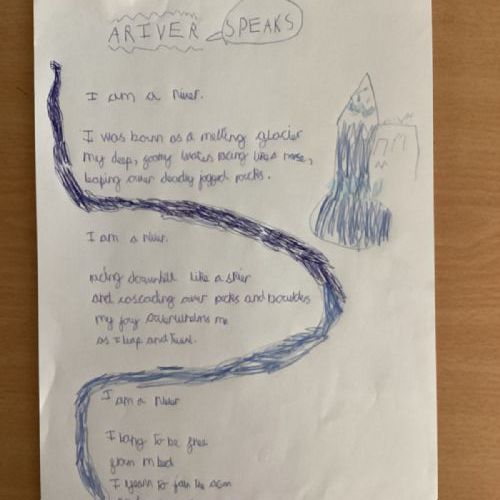 A RIVER SPEAKS
I am a river.
I was born as a melting glacier
my deep, foamy water racing like a horse,
leaping over deadly jagged rocks.
I am a river.
racing downhill like a skier
and cascading over rocks and boulders
my joy overwhelms me
as I leap and twirl.
I am a river
I long to be free
from m bed
I yearn to